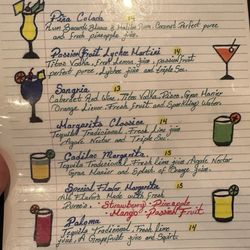 Piña Colada 14
Rum Bacardi Blanca & Malibu Rum, Coconut Perfect puree
and fresh pineapple juice.
Passion Fruit Lychee Martini 14
Titos Vodka, Fresh Lemon juice, passionfruit
perfect puree, Lychee juice and Triple Sec.
Sangria 13
Cabernet Red Wine, Titos Vodka, Grand Marnier
Orange, Lime, Fresh Fruit and Sparkling Water.
Margarita Classica 14
Tequila Tradicional, Fresh Lime juice
Agave Nectar and Triple Sec.
Cadillac Margarita. 15
Tequila Tradicional, Fresh Lime juice Agave Nectar
Grand Marnier and Splash of Orange Juice.
Special Flavor Margarita 15
All Flavors Made with Fresh
Puree's - Strawberry - Pineapple
- Mango - Passion Fruit
Paloma 14
Tequila Tradicional, Fresh Lime
juice, Grapefruit juice and Squirt.